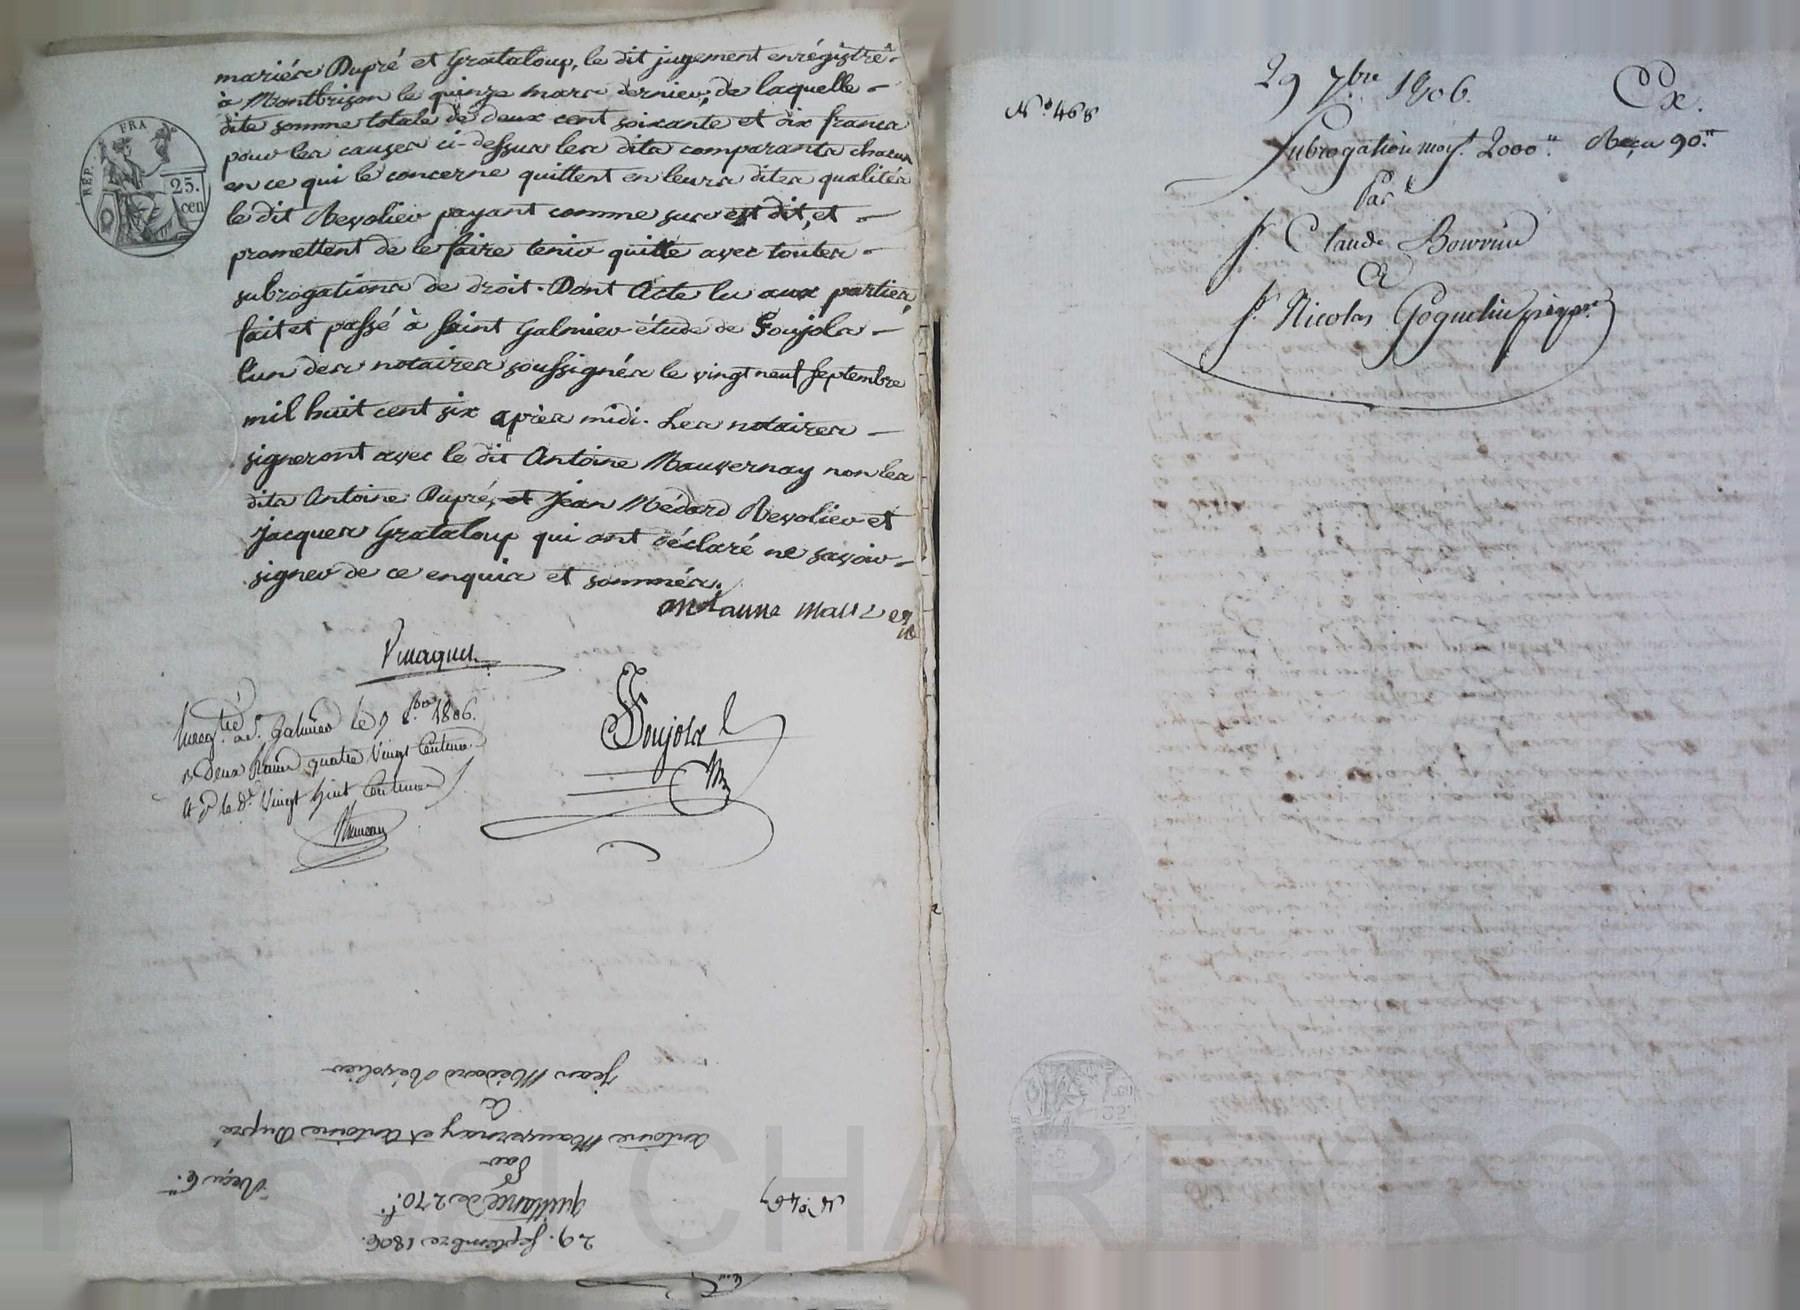 mariés Dupré et Grataloup, le dit jugement enrégistré
à Montbrison le quinze mars dernier, de laquelle
dite somme totale de deux cent soixante et dix francs
pour les causes ci-dessus les dits comparants chacun
en ce qui le concerne quittent en leurs dites qualités
le dit Revolier payant comme sus est dit, et
promettent de le faire tenir quitte avec toutes
subrogations de droit. Dont Acte lu aux parties
fait et passé à Saint Galmier étude de Soujols
l'un des notaires soussignés le vingt neuf Septembre
mil huit cent six après midi. Les notaires
signeront avec le dit Antoine Mauvernay non les
dits Antoine Dupré, et Jean Médard Revolier et
Jacques Grataloup qui ont déclaré ne savoir
signer de ce enquis et sommés.
RÉP. FRA
25.
cen
Soujol
Enregtré à St Galmier le 9 8bre 1806.
deux francs quatre vingt Centimes
et pr le dr Vingt huit Centimes
29. Septembre 1806.
quittance de 270f.
Par
Antoine Mauvernay et Antoine Dupré
à
Jean Médard Révolier
Reçu 6.tt
N.o 467
29 7bre 1806.
N.o 468
Ex.
Subrogation moyt. 2000tt. Reçu 90.tt
Par
Sr. Claude
à
Sr. Nicolas
Pascal CHAREYRON